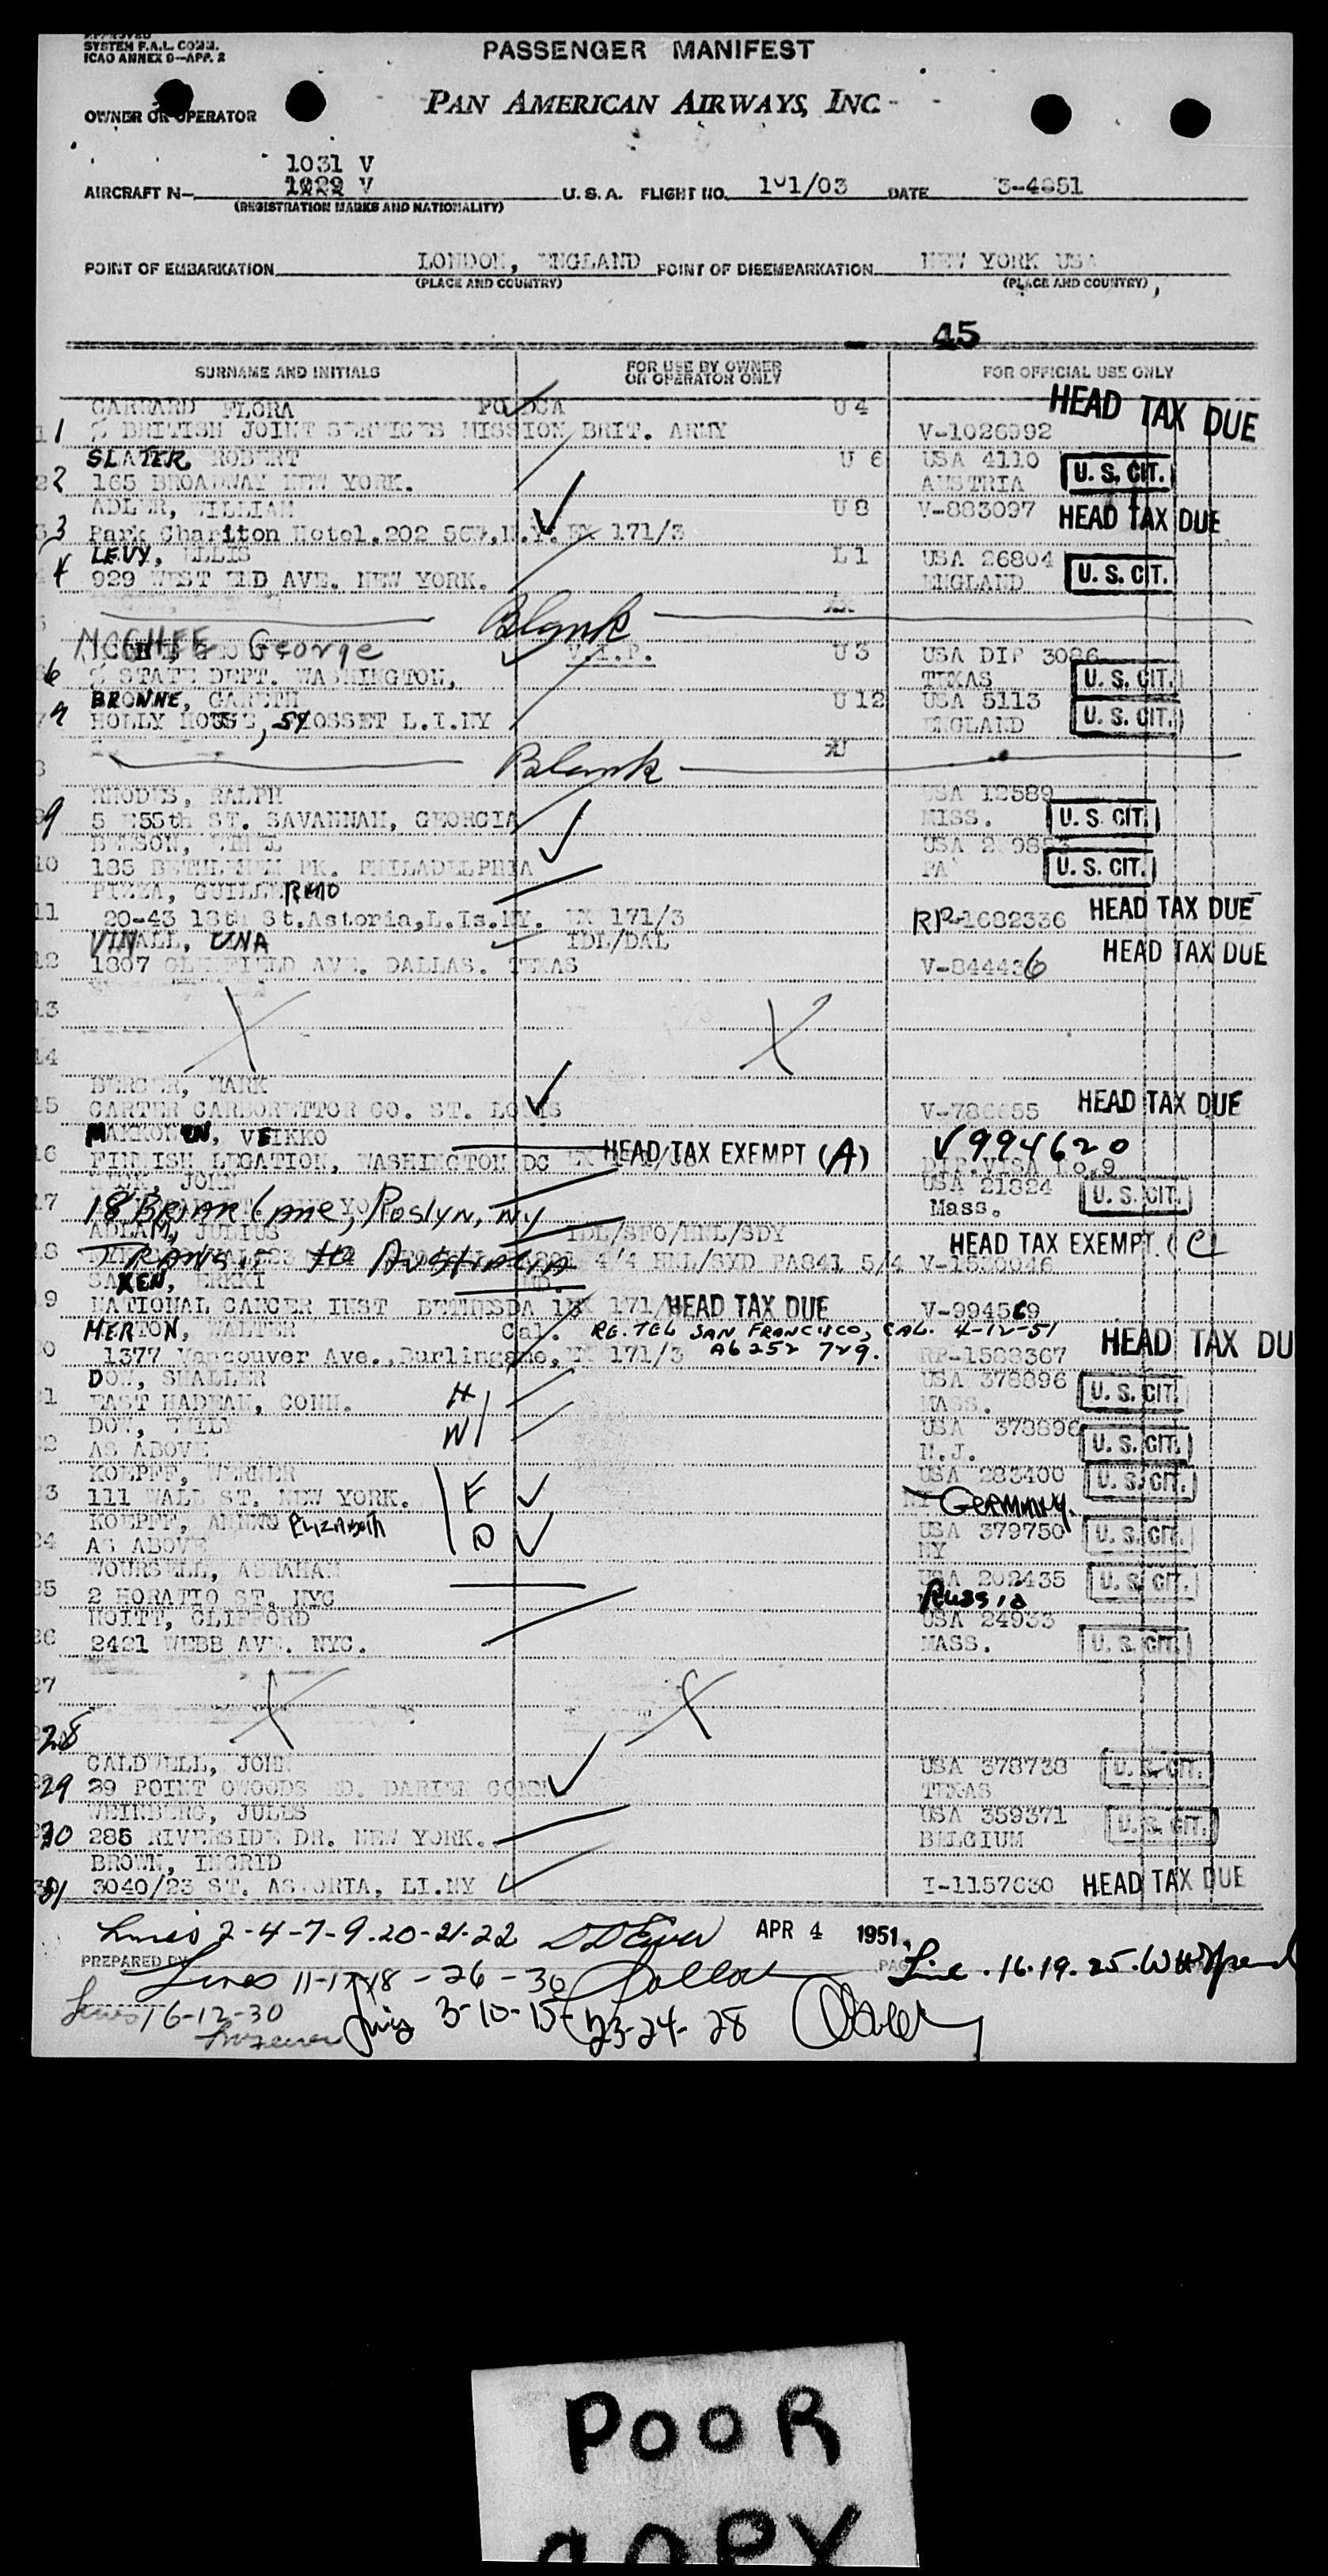 SYSTEM F.A.L. COMM.
ICAO ANNEX 9—APP. 2
PASSENGER MANIFEST
OWNER OR OPERATOR
PAN AMERICAN AIRWAYS, INC.
1031 V
AIRCRAFT N— V U.S.A. FLIGHT NO. 101/03 DATE 3-4051
(REGISTRATION MARKS AND NATIONALITY)
POINT OF EMBARKATION LONDON, ENGLAND POINT OF DISEMBARKATION NEW YORK USA
(PLACE AND COUNTRY) (PLACE AND COUNTRY)
45
SURNAME AND INITIALS FOR USE BY OWNER OR OPERATOR ONLY FOR OFFICIAL USE ONLY
GARRARD FLORA U 4 HEAD TAX DUE
1 % BRITISH JOINT SERVICES MISSION BRIT. ARMY V-1026992
SLATER, ROBERT U 6 USA 4110
2 165 BROADWAY NEW YORK. AUSTRIA U. S. CIT.
ADLER, WILLIAM U 8 V-883097 HEAD TAX DUE
3 Park Hotel, 202 N.Y. EX 171/3
LEVY, ELLIS L 1 USA 26804
4 929 WEST END AVE. NEW YORK. ENGLAND U. S. CIT.
Blank
MCGHEE George V.I.P. U 3 USA DIP 3086
6 % STATE DEPT. WASHINGTON, TEXAS U. S. CIT.
BROWNE, GARETH U 12 USA 5113
7 HOLLY HOUSE, SYOSSET L.I.NY ENGLAND U. S. CIT.
Blank
RHODES, RALPH USA 12589
9 5 E55th ST. SAVANNAH, GEORGIA MISS. U. S. CIT.
USA
10 185 BETHLEHEM PK. PHILADELPHIA PA U. S. CIT.
GUILLERMO
11 20-43 18th St. Astoria, L.Is.NY. EX 171/3 RP-1682336 HEAD TAX DUE
VINALL, UNA IDL/DAL HEAD TAX DUE
12 1807 AVE. DALLAS. TEXAS V-844436
13
14
BERGER, MARK
15 CARTER CARBORETTOR CO. ST. LOUIS V-786655 HEAD TAX DUE
MAKKONEN, VEIKKO HEAD TAX EXEMPT (A) V994620
16 FINNISH LEGATION, WASHINGTON DC DIP. VISA No.9
JOHN USA 21824
17 18 BRIAR Lane, Roslyn, NY Mass. U. S. CIT.
ADLAM, JULIUS IDL/SFO/HNL/SDY HEAD TAX EXEMPT. (C)
18 TRANSIT to AUSTRALIA 4/4 HNL/SYD PA841 5/4
SAXEN, ERKKI MD.
19 NATIONAL CANCER INST BETHESDA HEAD TAX DUE V-994569
MERTON, WALTER Cal. RE. TEL SAN FRANCISCO, CAL. 4-12-51
20 1377 Vancouver Ave., Burlingame, EX 171/3 A6 252 729. RP-1588367 HEAD TAX DU
DOW, SHALLER H USA 378896
21 EAST HADEAM, CONN. MASS. U. S. CIT.
DOW, EMILY W USA 378896
22 AS ABOVE N.J. U. S. CIT.
KOEPFF, WERNER F USA 283400
23 111 WALL ST. NEW YORK. GERMANY. U. S. CIT.
KOEPFF, Elizabeth D USA 379750
24 AS ABOVE NY U. S. CIT.
WOURSELL, ABRAHAM USA 202435
25 2 HORATIO ST. NYC Russia U. S. CIT.
HOITT, CLIFFORD USA 24933
26 2421 WEBB AVE. NYC. MASS. U. S. CIT.
27
28
CALDWELL, JOHN USA 378738
29 39 POINT OWOODS RD. DARIEN CONN TEXAS U. S. CIT.
WEINBERG, JULES USA 359371
30 285 RIVERSIDE DR. NEW YORK. BELGIUM U. S. CIT.
BROWN, INGRID
31 3040/23 ST. ASTORIA, LI.NY I-1157630 HEAD TAX DUE
Lines 2-4-7-9-20-21-22 APR 4 1951
PREPARED BY Lines 11-17-18-26-30 Line 16.19.25.
Lines 1-6-12-30 Lines 3-10-15-23-24-28
POOR
COPY